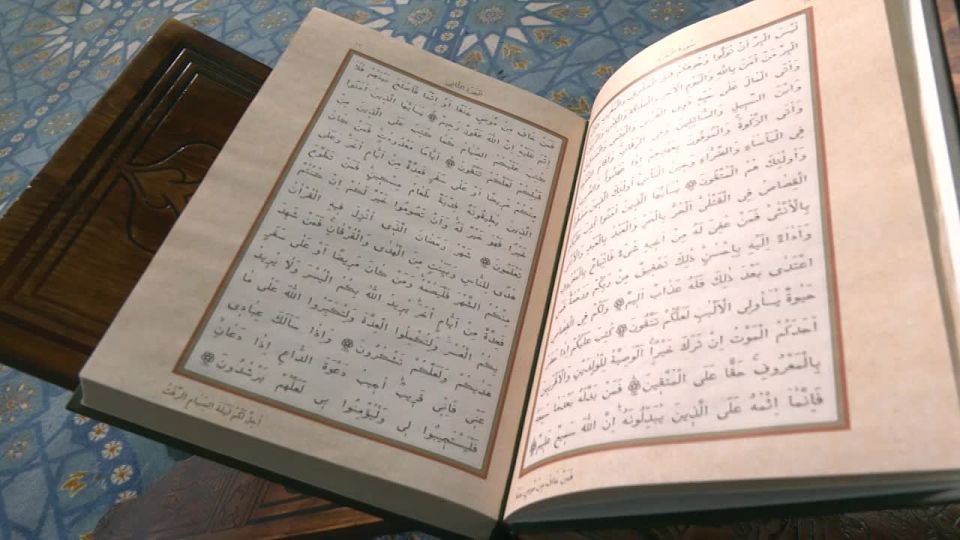 سُورَةُ الْبَقَرَةِ
لَيْسَ الْبِرَّ اَنْ تُوَلُّوا وُجُوهَكُمْ قِبَلَ الْمَشْرِقِ وَالْمَغْرِبِ وَلٰكِنَّ
الْبِرَّ مَنْ اٰمَنَ بِاللّٰهِ وَالْيَوْمِ الْاٰخِرِ وَالْمَلٰٓئِكَةِ وَالْكِتَابِ وَالنَّبِيّ۪نَ
وَاٰتَى الْمَالَ عَلٰى حُبِّه۪ ذَوِي الْقُرْبٰى وَالْيَتَامٰى وَالْمَسَاك۪ينَ
وَابْنَ السَّب۪يلِ وَالسَّٓائِل۪ينَ وَفِي الرِّقَابِ وَاَقَامَ الصَّلٰوةَ
وَاٰتَى الزَّكٰوةَ وَالْمُوفُونَ بِعَهْدِهِمْ اِذَا عَاهَدُوا وَالصَّابِر۪ينَ
فِي الْبَأْسَٓاءِ وَالضَّرَّٓاءِ وَح۪ينَ الْبَأْسِ اُولٰٓئِكَ الَّذ۪ينَ صَدَقُوا
وَاُولٰٓئِكَ هُمُ الْمُتَّقُونَ يَٓا اَيُّهَا الَّذ۪ينَ اٰمَنُوا كُتِبَ عَلَيْكُمُ
الْقِصَاصُ فِي الْقَتْلٰى اَلْحُرُّ بِالْحُرِّ وَالْعَبْدُ بِالْعَبْدِ وَالْاُنْثٰى
بِالْاُنْثٰى فَمَنْ عُفِيَ لَهُ مِنْ اَخ۪يهِ شَيْءٌ فَاتِّبَاعٌ بِالْمَعْرُوفِ
وَاَدَٓاءٌ اِلَيْهِ بِاِحْسَانٍ ذٰلِكَ تَخْف۪يفٌ مِنْ رَبِّكُمْ وَرَحْمَةٌ فَمَنِ
اعْتَدٰى بَعْدَ ذٰلِكَ فَلَهُ عَذَابٌ اَل۪يمٌ وَلَكُمْ فِي الْقِصَاصِ
حَيٰوةٌ يَٓا اُو۬لِي الْاَلْبَابِ لَعَلَّكُمْ تَتَّقُونَ كُتِبَ عَلَيْكُمْ اِذَا حَضَرَ
اَحَدَكُمُ الْمَوْتُ اِنْ تَرَكَ خَيْرًا اَلْوَصِيَّةُ لِلْوَالِدَيْنِ وَالْاَقْرَب۪ينَ
بِالْمَعْرُوفِ حَقًّا عَلَى الْمُتَّق۪ينَ فَمَنْ بَدَّلَهُ بَعْدَمَا سَمِعَهُ
فَاِنَّمَٓا اِثْمُهُ عَلَى الَّذ۪ينَ يُبَدِّلُونَهُ اِنَّ اللّٰهَ سَم۪يعٌ عَل۪يمٌ
فَمَنْ خَافَ مِنْ مُوصٍ
اَلْجُزْءُ الثَّان۪ي
فَمَنْ خَافَ مِنْ مُوصٍ جَنَفًا اَوْ اِثْمًا فَاَصْلَحَ بَيْنَهُمْ فَلَٓا
اِثْمَ عَلَيْهِ اِنَّ اللّٰهَ غَفُورٌ رَح۪يمٌ يَٓا اَيُّهَا الَّذ۪ينَ اٰمَنُوا
كُتِبَ عَلَيْكُمُ الصِّيَامُ كَمَا كُتِبَ عَلَى الَّذ۪ينَ مِنْ
قَبْلِكُمْ لَعَلَّكُمْ تَتَّقُونَ اَيَّامًا مَعْدُودَاتٍ فَمَنْ كَانَ
مِنْكُمْ مَر۪يضًا اَوْ عَلٰى سَفَرٍ فَعِدَّةٌ مِنْ اَيَّامٍ اُخَرَ وَعَلَى
الَّذ۪ينَ يُط۪يقُونَهُ فِدْيَةٌ طَعَامُ مِسْك۪ينٍ فَمَنْ تَطَوَّعَ
خَيْرًا فَهُوَ خَيْرٌ لَهُ وَاَنْ تَصُومُوا خَيْرٌ لَكُمْ اِنْ كُنْتُمْ
تَعْلَمُونَ شَهْرُ رَمَضَانَ الَّذ۪ٓي اُنْزِلَ ف۪يهِ الْقُرْاٰنُ
هُدًى لِلنَّاسِ وَبَيِّنَاتٍ مِنَ الْهُدٰى وَالْفُرْقَانِ فَمَنْ شَهِدَ
مِنْكُمُ الشَّهْرَ فَلْيَصُمْهُ وَمَنْ كَانَ مَر۪يضًا اَوْ عَلٰى سَفَرٍ
فَعِدَّةٌ مِنْ اَيَّامٍ اُخَرَ يُر۪يدُ اللّٰهُ بِكُمُ الْيُسْرَ وَلَا يُر۪يدُ
بِكُمُ الْعُسْرَ وَلِتُكْمِلُوا الْعِدَّةَ وَلِتُكَبِّرُوا اللّٰهَ عَلٰى مَا
هَدٰيكُمْ وَلَعَلَّكُمْ تَشْكُرُونَ وَاِذَا سَاَلَكَ عِبَاد۪ي
عَنّ۪ي فَاِنّ۪ي قَر۪يبٌ اُج۪يبُ دَعْوَةَ الدَّاعِ اِذَا دَعَانِ
فَلْيَسْتَج۪يبُوا ل۪ي وَلْيُؤْمِنُوا ب۪ي لَعَلَّهُمْ يَرْشُدُونَ
اُحِلَّ لَكُمْ لَيْلَةَ الصِّيَامِ الرَّفَثُ